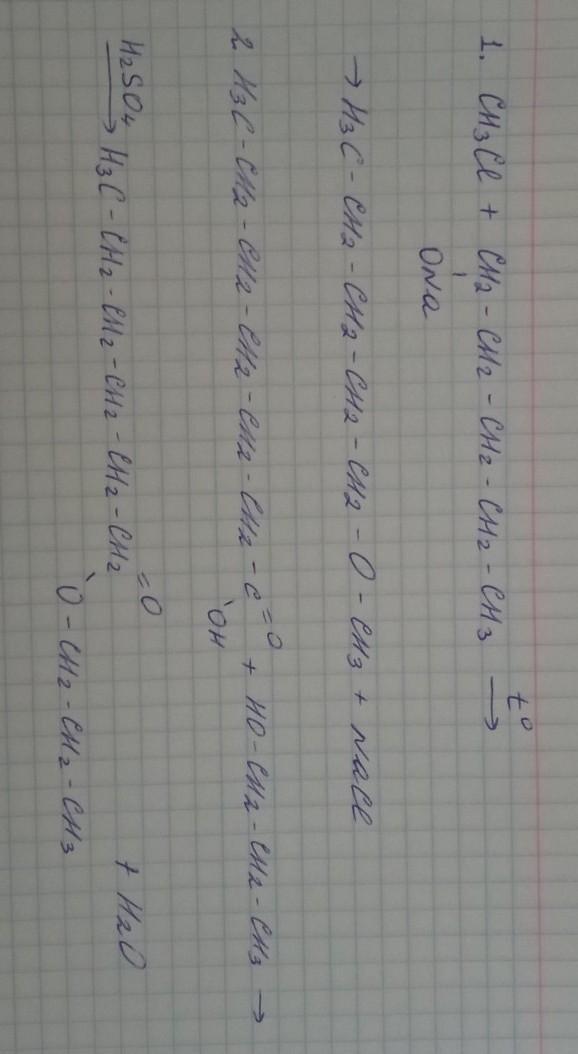 1. CH3Cl + CH2 - CH2 - CH2 - CH2 - CH3 t° →
ONa
→ H3C - CH2 - CH2 - CH2 - CH2 - O - CH3 + NaCl
2. H3C - CH2 - CH2 - CH2 - CH2 - CH2 - C = O + HO - CH2 - CH2 - CH3 →
OH
H2SO4 → H3C - CH2 - CH2 - CH2 - CH2 - CH2 = O + H2O
O - CH2 - CH2 - CH3